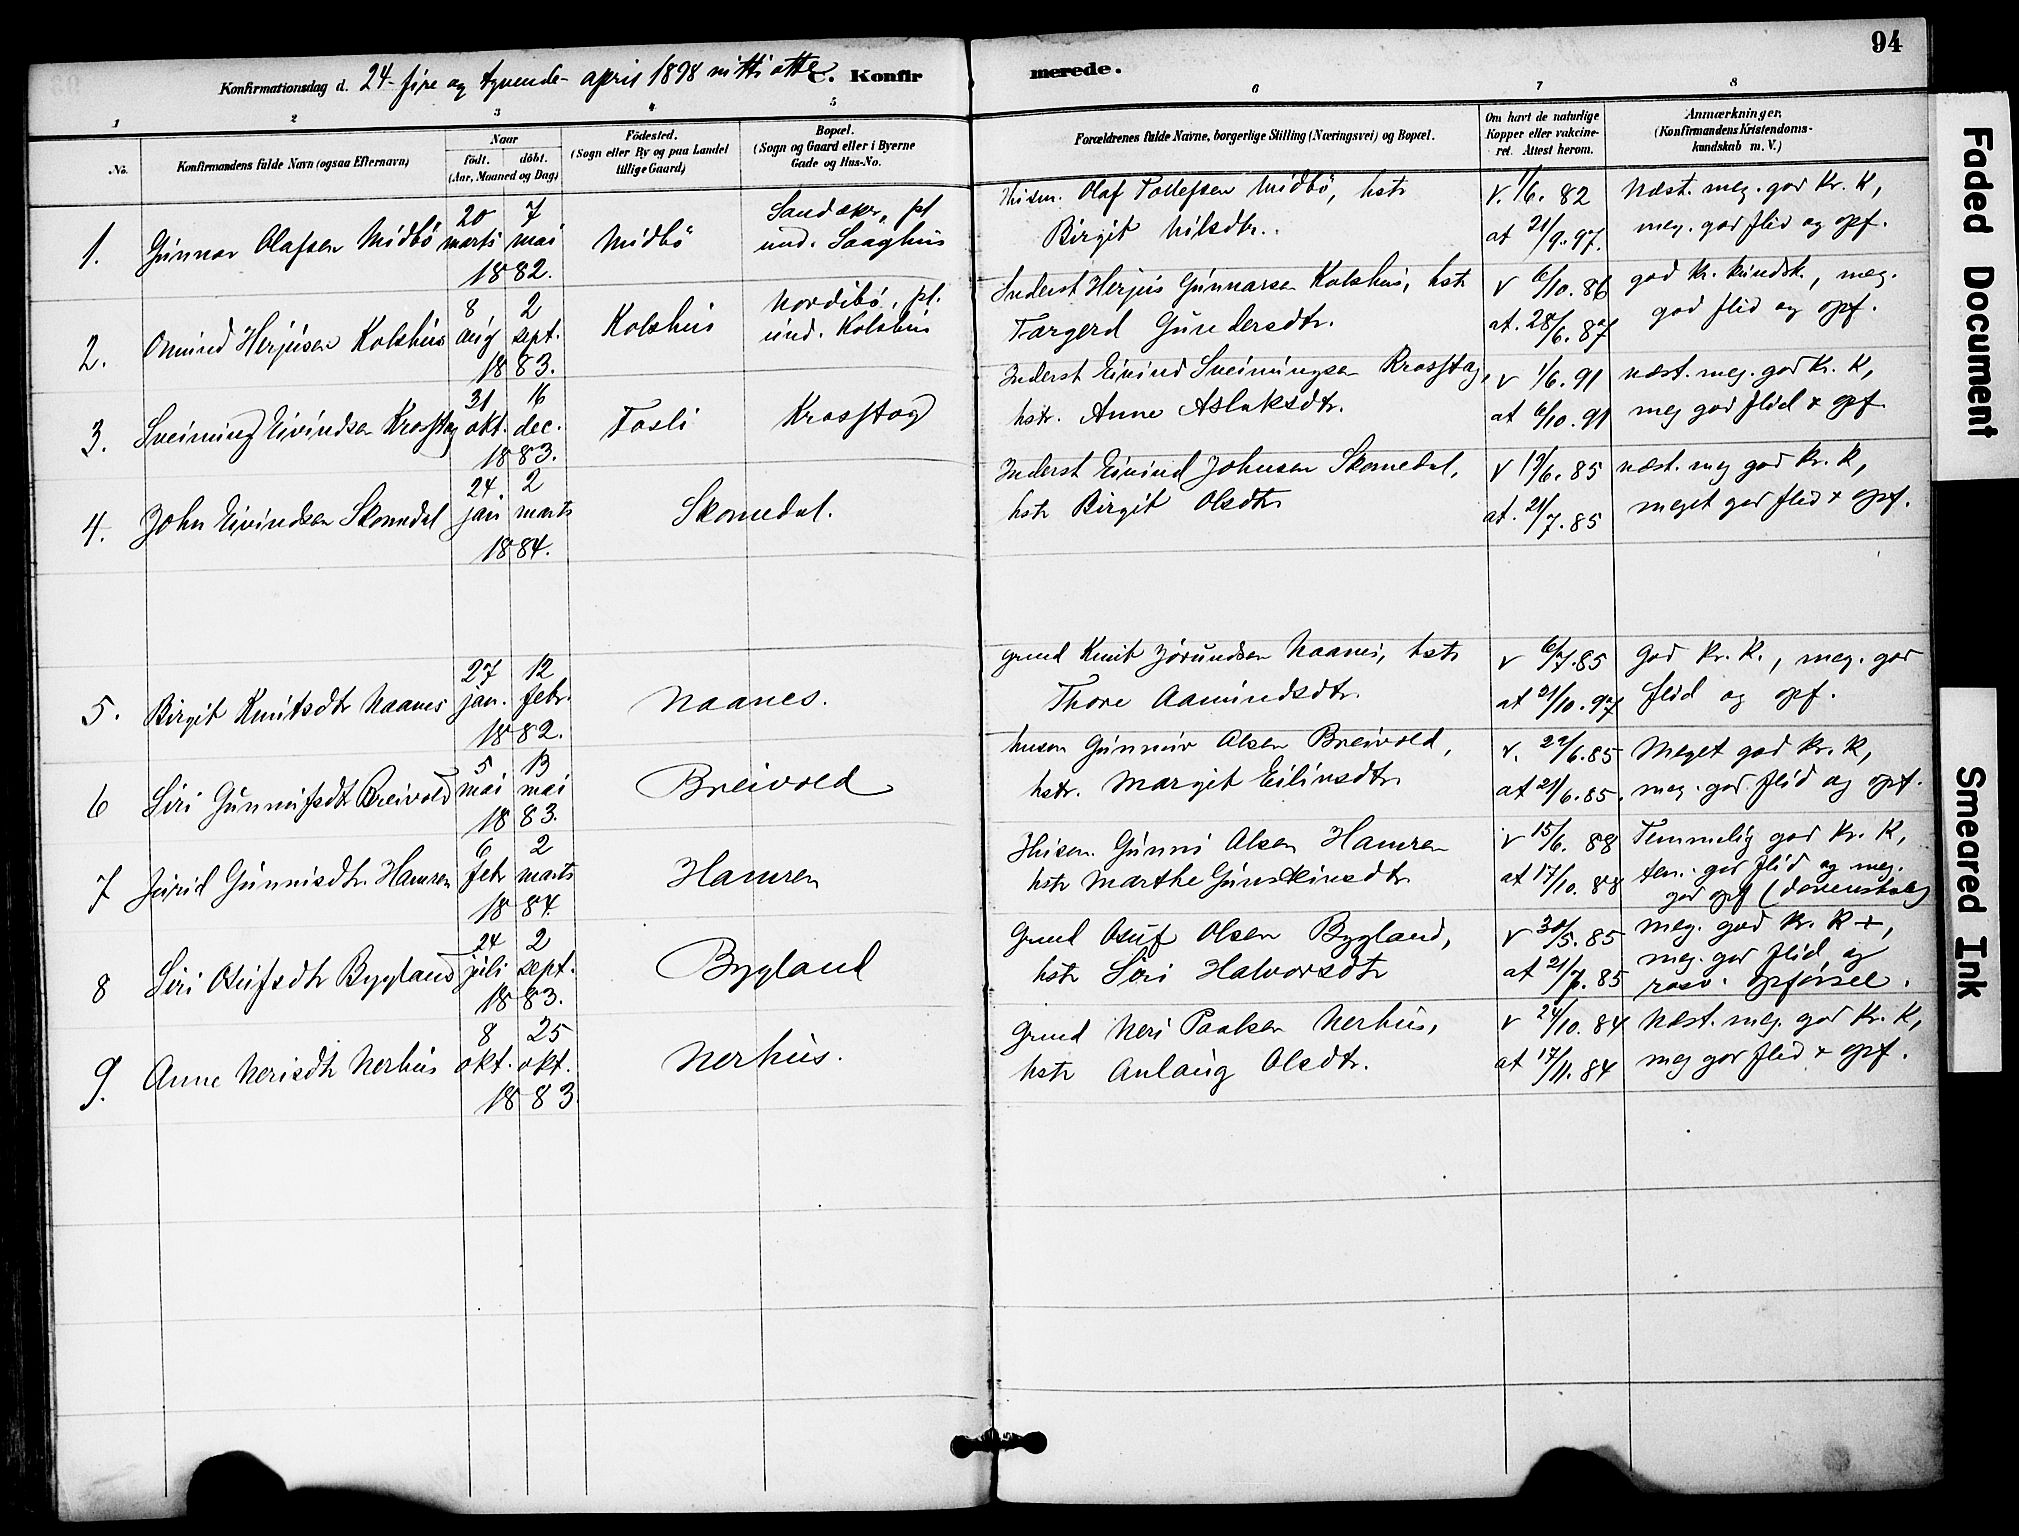 94
Konfirmationsdag d. 24- fire og tyvende- april 1898 nitti otte C. Konfirmerede.
1 2 3 4 5 6 7 8
No. Konfirmandens fulde Navn (ogsaa Efternavn) Naar født. døbt. (Aar, Maaned og Dag) Fødested. (Sogn eller By og paa Landet tillige Gaard) Bopæl. (Sogn og Gaard eller i Byerne Gade og Hus-No. Forældrenes fulde Navne, borgerlige Stilling (Næringsvei) og Bopæl. Om havt de naturlige Kopper eller vakcineret. Attest herom. Anmærkninger. (Konfirmandens Kristendomskundskab m. V.)
1. Gunnar Olafsen Midbö 20 marts 7 mai 1882. Midbö Sandekr, pl. und. Saaghus
Husm. Olaf Tollefsen Midbö, hstr Birgit Nilsdtr. v. 1/6. 82 at 21/9. 97. Næst. meg. god Kr. K, meg. god flid og opf.
2. Omund Herjusen Kolshus 8 aug 2 sept. 1883. Kolshus Nordibö, pl. und. Kolshus
Inderst Herjus Gunnarsen Kolshus, hstr Targerd Gundersdtr. v 6/10. 86 at. 28/6. 87 god kr. kundsk., meg. god flid og opf.
3. Sveinung Eivindsen Krosstag 31 okt. 16 dec. 1883. Fosli Krosstag
Inderst Eivind Sveinungsen Krosstag, hstr. Anne Aslaksdtr. v 1/6. 91 at 6/10. 91 næst. meg. god Kr. K, meg god flid + opf.
4. John Eivindsen Skomedal 24. jan 2 marts 1884. Skomedal.
Inderst Eivind Johnsen Skomedal, hstr Birgit Olsdtr v 19/6. 85 at. 21/7. 85 næst. meg god Kr. K, meget god flid + opf.
5. Birgit Knutsdtr Naanes 27 jan. 12 febr. 1882. Naanes.
Grmd Knut Jorundsen Naanes, hstr Thore Aamundsdtr. v 6/7. 85 at 21/10. 97 God Kr. K., meg. god flid og opf.
6 Siri Gunnufsdtr Breivold 5 mai 13 mai 1883. Breivold
husm Gunnuv Olsen Breivold, hstr. Margit Eilivsdtr v. 22/6. 85 at 21/6. 85. Meget god Kr. K, meg. god flid og opf.
7 Jurid Gunnisdtr Hamren 6 febr 2 marts 1884. Hamren
Husm. Gunni Olsen Hamren hstr Marthe v 15/6. 88 at 17/10. 88 Temmelig god Kr. K, tem. god flid og meg. god opf
8 Siri Osufsdtr Bygland 24 juli 2 sept. 1883. Bygland
Grmd Osuf Olsen Bygland, hstr Siri Halvorsdtr v 30/5. 85 at 21/7. 85 meg. god Kr. K +, meg. god flid og rosv. opførsel.
9. Anne Nerisdtr Nerhus 8 okt. 25 okt. 1883 Nerhus.
Grmd Neri Paalsen Nerhus, hstr Anlaug Olsdtr. v 24/10. 84 at 17/11. 84 Næst. meg. god Kr. K, meg god flid + opf.
Faded Document
Smeared Ink